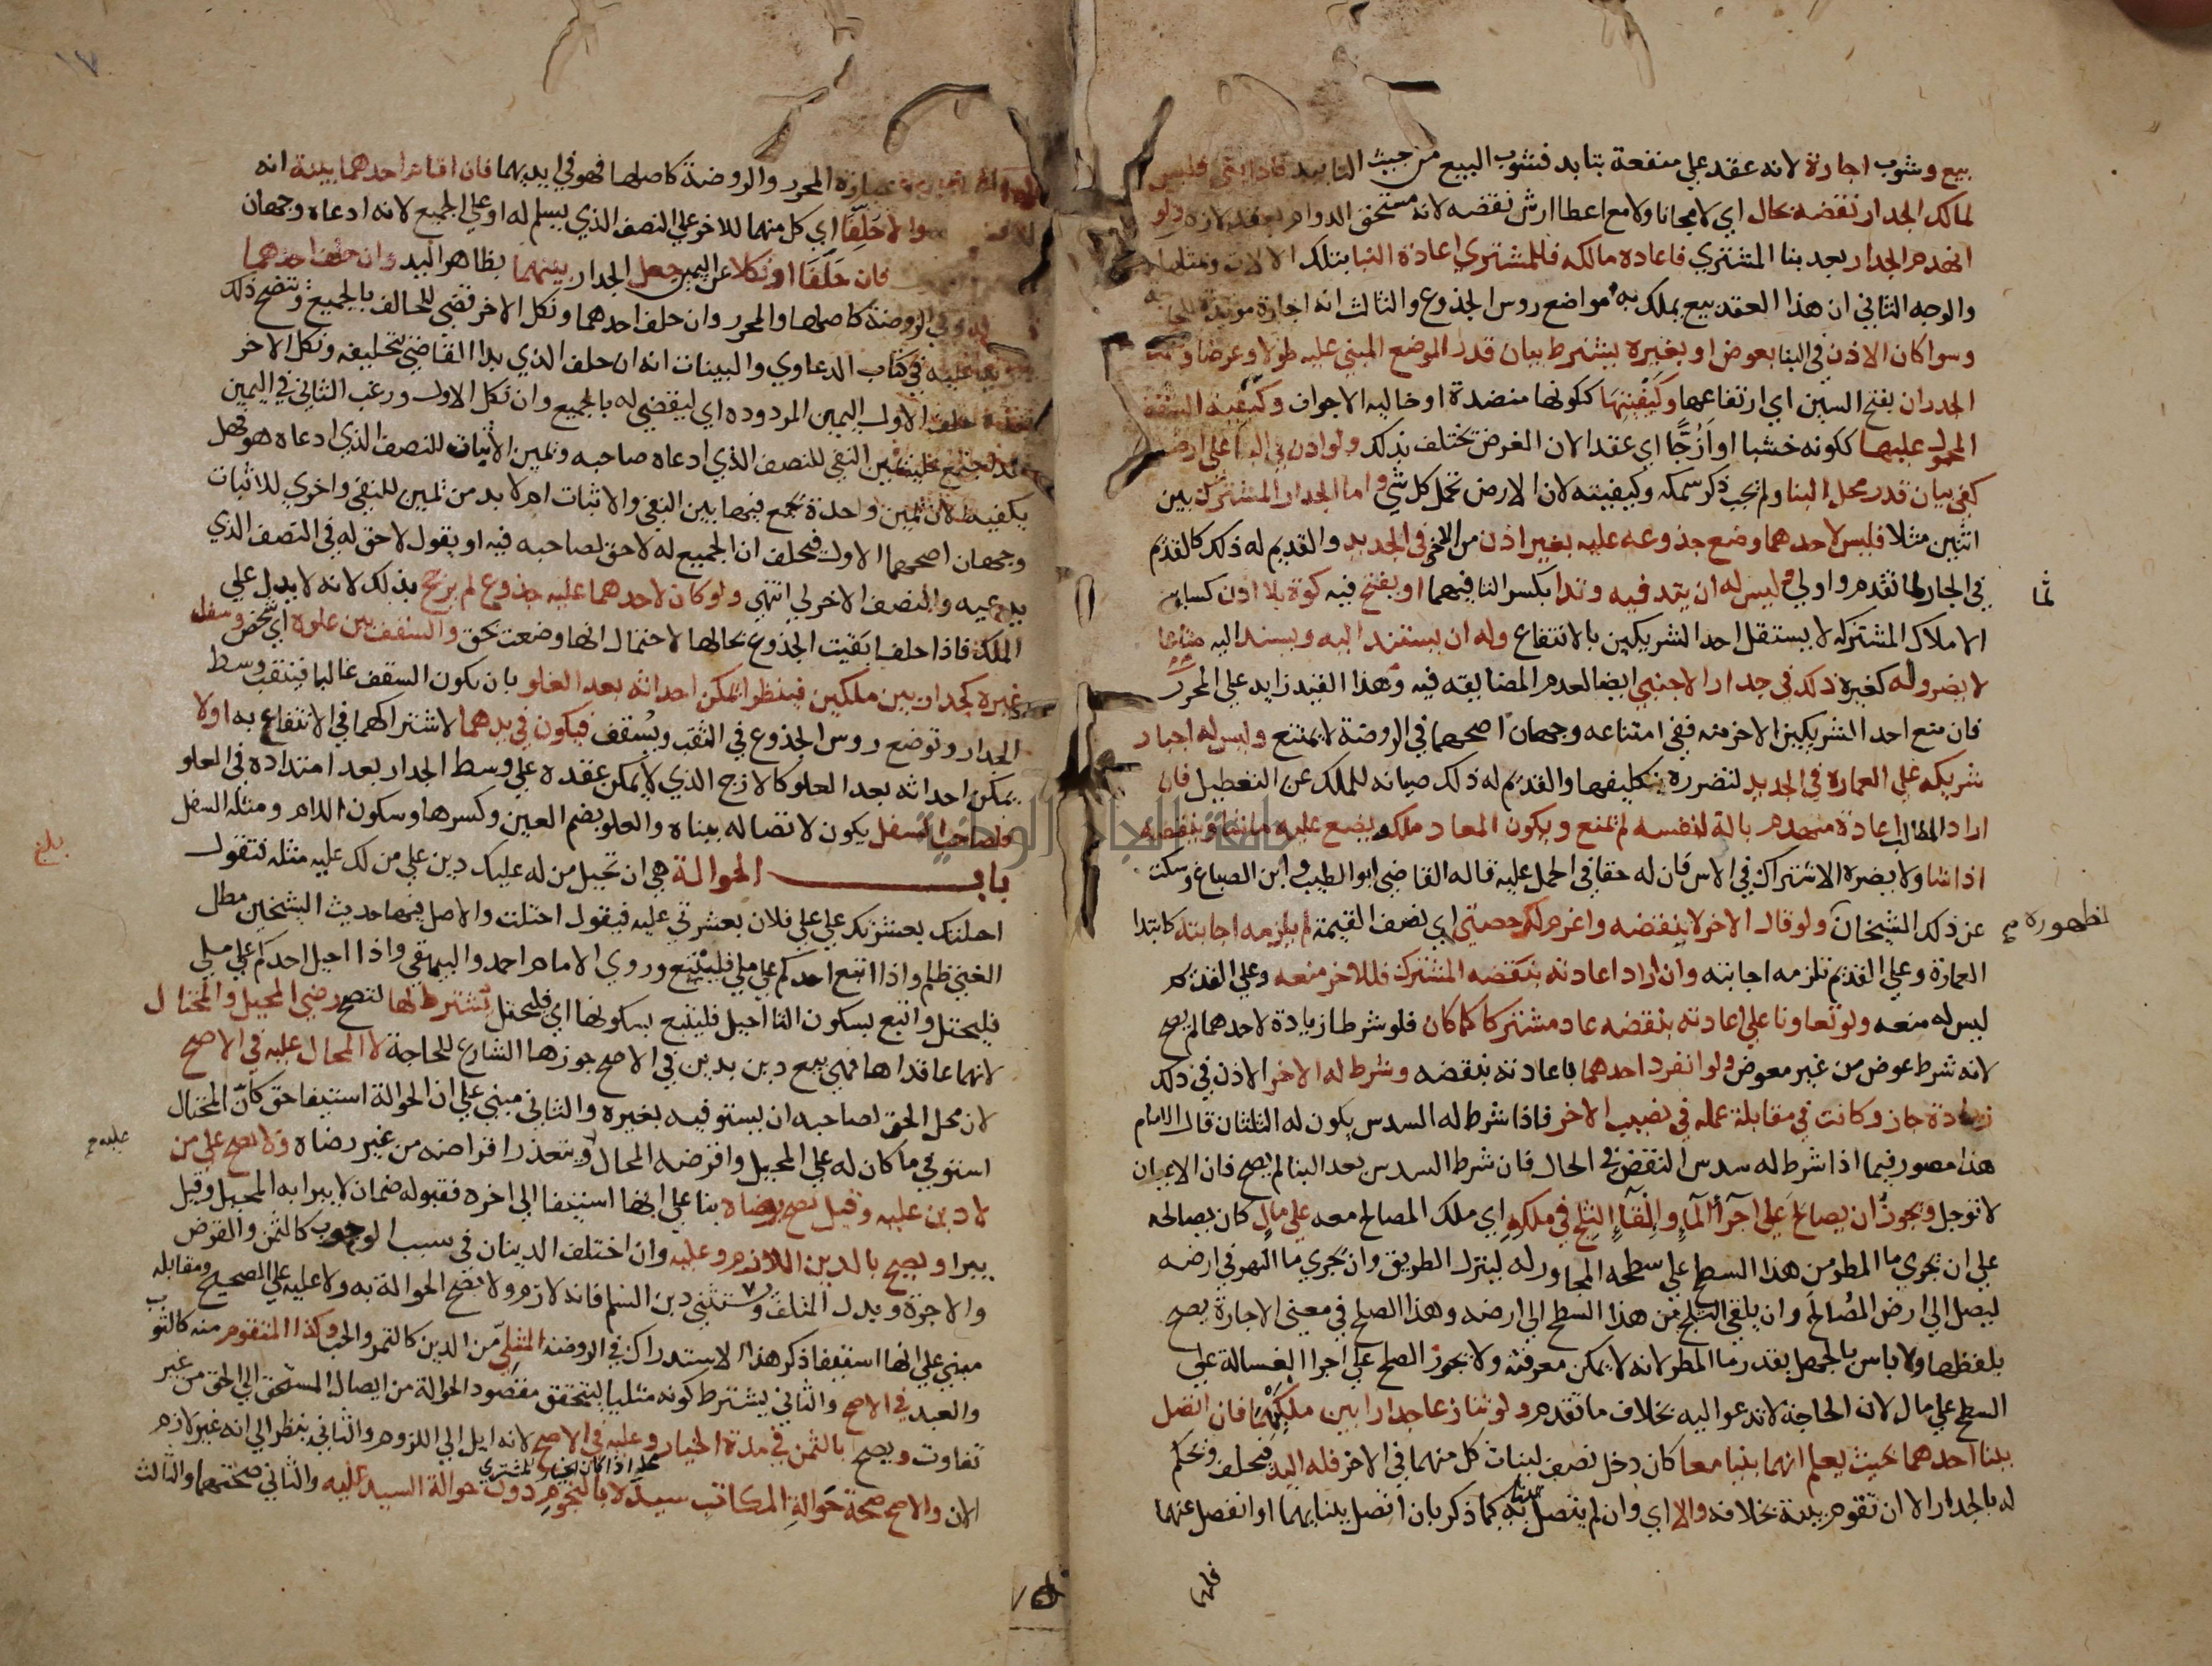 بيع وشوب اجارة لانه عقد على منفعة يتابد فشوب البيع من حيث التابيد فاذا بنى فليس
لمالك الجدار نقضه بحال اي لا مجانا ولا مع اعطا ارش نقضه لانه مستحق الدوام بعقد لازم ولو
انهدم الجدار بعد بنا المشتري فاعاده مالكه فللمشتري اعادة البنا بتلك الالات وبمثلها
والوجه الثاني ان هذا العقد بيع يملك به مواضع روس الجذوع والثالث انه اجارة موبدة للحاجة
وسوا كان الاذن في البنا بعوض او بغيره يشترط بيان قدر الموضع المبني عليه طولا وعرضا وسمك
الجدران بفتح السين اي ارتفاعها وكيفيتها ككونها منضدة او خالية الاجواف وكيفية السقف
المحمول عليها ككونه خشبا او ازجا اي عقدا لان الغرض يختلف بذلك ولو اذن في البنا على ارضه
كفى بيان قدر محل البنا ولم يجب ذكر سمكه وكيفيته لان الارض تحمل كل شي واما الجدار المشترك بين
اثنين مثلا فليس لاحدهما وضع جذوعه عليه بغير اذن من الاخر في الجديد والقديم له ذلك كالقديم
في الجار لما تقدم واولى وليس له ان يتد فيه وتدا بكسر التا فيهما او يفتح فيه كوة بلا اذن كساير
ثما
الاملاك المشتركه لا يستقل احد الشريكين بالانتفاع وله ان يستند اليه ويسند اليه متاعا
لا يضر وله كغيره ذلك في جدار الاجنبي ايضا لعدم المضايقه فيه وهذا القيد زايد على المحرر
فان منع احد الشريكين الاخر منه ففي امتناعه وجهان اصحهما في الروضة لا يمتنع وليس له اجبار
شريكه على العمارة في الجديد لتضرره بتكليفها والقديم له ذلك صيانه للملك عن التعطيل فان
اراد الطالب اعادة منهدم بالة لنفسه لم يمنع ويكون المعاد ملكه يضع عليه ما شا وينقضه
اذا شا ولا يضره الاشتراك في الاس فان له حقا في الحمل عليه قاله القاضي ابو الطيب وابن الصباغ وسكت
لظهوره صح
عن ذلك الشيخان ولو قال الاخر لا ينقضه واغرم لك حصتي اي نصف القيمة لم يلزمه اجابته كابتدا
العمارة وعلى القديم تلزمه اجابته وان اراد اعادته بنقضه المشترك فللاخر منعه وعلى القديم
ليس له منعه ولو تعاونا على اعادته بنقضه عاد مشتركا كما كان فلو شرطا زيادة لاحدهما لم يصح
لانه شرط عوض من غير معوض ولو انفرد احدهما باعادته بنقضه وشرط له الاخر الاذن في ذلك
زيادة جاز وكانت في مقابلة عمله في نصيب الاخر فاذا شرط له السدس يكون له الثلثان قال الامام
هذا مصور فيما اذا شرط له سدس النقض في الحال فان شرط السدس بعد البنا لم يصح فان الاعيان
لا توجل ويجوز ان يصالح على اجراء الماء والقاء الثلج في ملكه اي ملك المصالح معه على مال كان يصالحه
على ان يجري ما المطر من هذا السطح على سطحه المجاور له لينزل الطريق وان يجري ما النهر في ارضه
ليصل الى ارض المصالح وان يلقي الثلج من هذا السطح الى ارضه وهذا الصلح في معنى الاجارة يصح
بلفظها ولا باس بالجهل بقدر ما المطر لانه لا يمكن معرفته ولا يجوز الصلح على اجرا الغسالة على
السطح على مال لان الحاجة لا تدعو اليه بخلاف ما تقدم ولو تنازعا جدارا بين ملكيهما فان اتصل
ببنا احدهما بحيث يعلم انهما بنيا معا كان دخل نصف لبنات كل منهما في الاخر فله اليد فيحلف ويحكم
له بالجدار الا ان تقوم بينة بخلافه والا اي وان لم يتصل ببنا به كما ذكر بان اتصل ببنايهما او انفصل عنهما
فلهما
عبارة المحرر والروضة كاصلها فهو في ايديهما فان اقام احدهما بينة انه
والا حلفا اي كل منهما للاخر على النصف الذي يسلم له او على الجميع لانه ادعاه وجهان
فان حلفا او نكلا عن اليمين جعل الجدار بينهما بظاهر اليد وان حلف احدهما
وفي الروضة كاصلها والمحرر وان حلف احدهما ونكل الاخر قضي للحالف بالجميع ويتضح ذلك
في كتاب الدعاوي والبينات انه ان حلف الذي بدا القاضي بتحليفه ونكل الاخر
حلف الاول اليمين المردودة اي ليقضي له بالجميع وان نكل الاول ورغب الثاني في اليمين
يمين النفي للنصف الذي ادعاه صاحبه ويمين الاثبات للنصف الذي ادعاه هو فهل
يكفيه الان يمين واحدة تجمع فيها بين النفي والاثبات ام لا بد من يمين للنفي واخرى للاثبات
وجهان اصحهما الاول فيحلف ان الجميع له لا حق لصاحبه فيه او يقول لا حق له في النصف الذي
يدعيه والنصف الاخر لي انتهى ولو كان لاحدهما عليه جذوع لم يرجح بذلك لانه لا يدل على
الملك فاذا حلفا بقيت الجذوع بحالها لاحتمال انها وضعت بحق والسقف بين علوه اي شخص وسفل
غيره كجدار بين ملكين فينظر ايمكن احداثه بعد العلو بان يكون السقف غالبا فينقب وسط
الجدار وتوضع روس الجذوع في النقب ويسقف فيكون في يدهما لاشتراكهما في الانتفاع به او لا
يمكن احداثه بعد العلو كالازج الذي لا يمكن عقده على وسط الجدار بعد امتداده في العلو
فلصاحب السفل يكون لاتصاله ببناه والعلو بضم العين وكسرها وسكون اللام ومثله السفل
بلغ
باب الحوالة هي ان تحيل من له عليك دين على من لك عليه مثله فتقول
احلتك بعشرتك علي على فلان بعشرتي عليه فيقول احتلت والاصل فيها حديث الشيخين مطل
الغني ظلم واذا اتبع احدكم على ملي فليتبع وروى الامام احمد والبيهقي واذا احيل احدكم على ملي
فليحتل واتبع بسكون التا احيل فليتبع بسكونها اي فليحتل يشترط لها لتصح رضى المحيل والمحتال
لانهما عاقداها فهي بيع دين بدين في الاصح جوزها الشارع للحاجة لا المحال عليه في الاصح
لان محل الحق لصاحبه ان يستوفيه بغيره والثاني مبني على ان الحوالة استيفا حق كان المحتال
استوفى ما كان له على المحيل واقرضه المحال ويتعذر اقراضه من غير رضاه ولا يصح على من
عليه صح
لا دين عليه وقيل تصح برضاه بنا على انها استيفا الى اخره فقبوله ضمان لا يبرا به المحيل وقيل
يبرا ويصح بالدين اللازم وعليه وان اختلف الدينان في سبب الوجوب كالثمن والقرض
والاجرة وبدل المتلف ويستثنى دين السلم فانه لازم ولا تصح الحوالة به ولا عليه على الصحيح ومقابله
مبني على انها استيفا ذكر هذا الاستدراك في الروضة المثلي من الدين كالتمر والحب وكذا المتقوم منه كالثوب
والعبد في الاصح والثاني يشترط كونه مثليا ليتحقق مقصود الحوالة من ايصال المستحق الى الحق من غير
تفاوت ويصح بالثمن في مدة الخيار وعليه في الاصح لانه ايل الى اللزوم والثاني ينظر الى انه غير لازم
الان والاصح صحة حوالة المكاتب سيده بالنجوم دون حوالة السيد عليه والثاني صحتهما والثالث
جامعة النجاح الوطنية